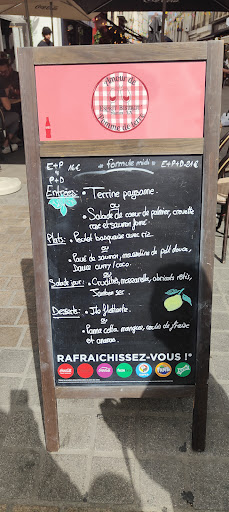 Amour de
Pomme de terre
E+P 16€ "formule midi" E+P+D 21€
ou
P+D
Entrées: • Terrine paysanne.
ou
• Salade de cœur de palmier, crevette
rose et saumon fumé.
Plats: • Poulet basquaise avec riz.
ou
• Pavé de saumon, macédoine de patate douce,
sauce curry/coco.
Salade jour: • Crudités, mozzarella, abricots rôtis,
Jambon sec.
Desserts: • Ile flottante.
ou
• Panna cotta mangue, coulis de fraise
et ananas.
RAFRAICHISSEZ-VOUS !*